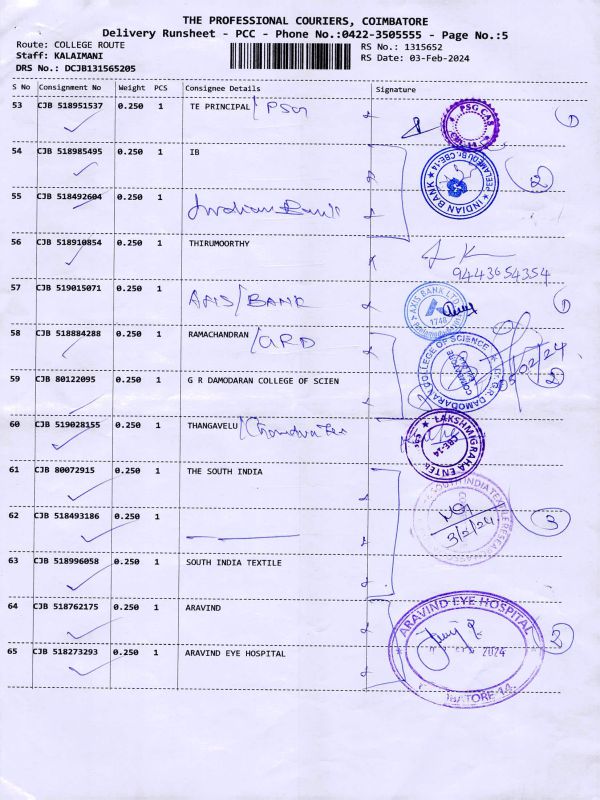 THE PROFESSIONAL COURIERS, COIMBATORE
Delivery Runsheet - PCC - Phone No.:0422-3505555 - Page No.:5
Route: COLLEGE ROUTE RS No.: 1315652
Staff: KALAIMANI RS Date: 03-Feb-2024
DRS No.: DCJB131565205
S No Consignment No Weight PCS Consignee Details Signature
53 CJB 518951537 0.250 1 TE PRINCIPAL / PSG
PSG CAS
1
54 CJB 518985495 0.250 1 IB
INDIAN BANK PEELAMEDU, CBE-14
2
55 CJB 518492604 0.250 1 Indian Bank
56 CJB 518910854 0.250 1 THIRUMOORTHY
9443654354
57 CJB 519015071 0.250 1 AXIS / BANK
AXIS BANK LTD
1746
1
58 CJB 518884288 0.250 1 RAMACHANDRAN / GRD
COLLEGE OF SCIENCE
DR. G.R. DAMODARAN
05/02/24
2
59 CJB 80122095 0.250 1 G R DAMODARAN COLLEGE OF SCIEN
60 CJB 519028155 0.250 1 THANGAVELU / Chandra Tex
LAKSHMIGRAHA ENTER
CBE-14
61 CJB 80072915 0.250 1 THE SOUTH INDIA
SOUTH INDIA TEXTILE RESEARCH
3/2/24
3
62 CJB 518493186 0.250 1
63 CJB 518996058 0.250 1 SOUTH INDIA TEXTILE
64 CJB 518762175 0.250 1 ARAVIND
ARAVIND EYE HOSPITAL
2024
COIMBATORE-14
2
65 CJB 518273293 0.250 1 ARAVIND EYE HOSPITAL